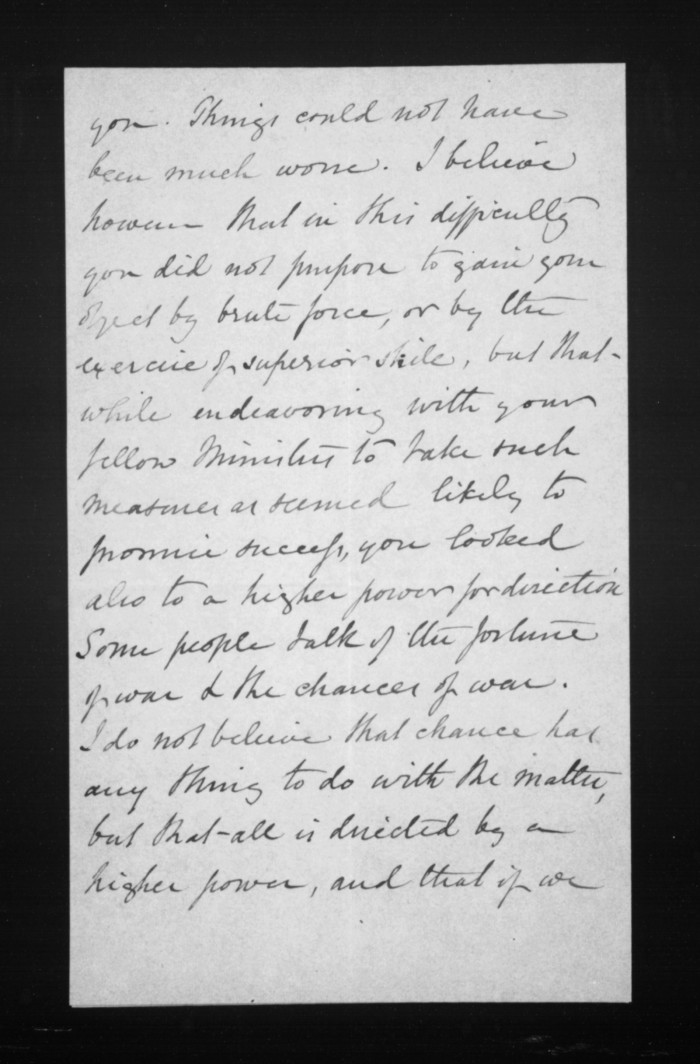 you. Things could not have
been much worse. I believe
however that in this difficulty
you did not purpose to gain your
object by brute force, or by the
exercise of superior skill, but that
while endeavoring with your
fellow Ministers to take such
measures as seemed likely to
promise success, you looked
also to a higher power for direction
Some people talk of the fortune
of war & the chances of war.
I do not believe that chance has
any thing to do with the matter,
but that all is directed by a
higher power, and that if we